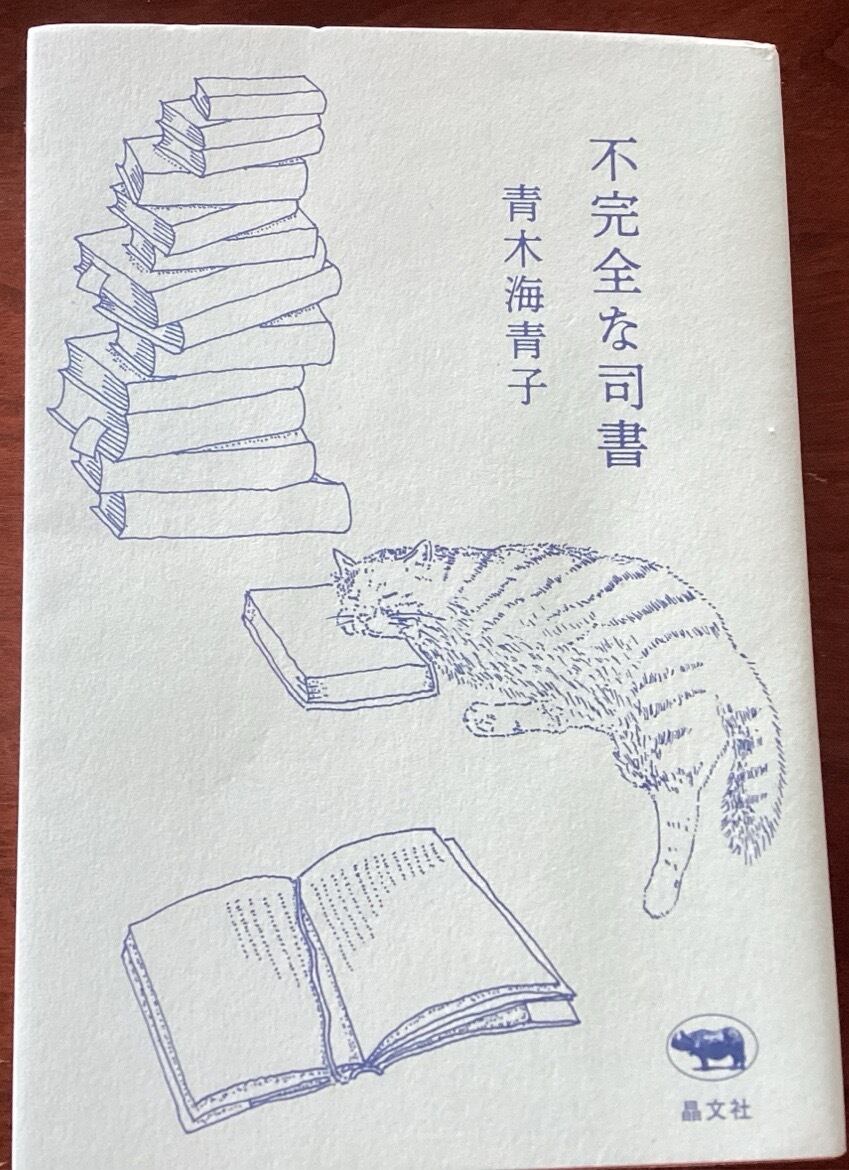 不完全な司書
青木海青子
晶文社